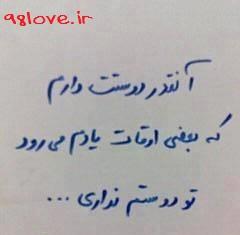 98love.ir
آنقدر دوستت دارم
که بعضی اوقات یادم می رود
تو دوستم نداری ...